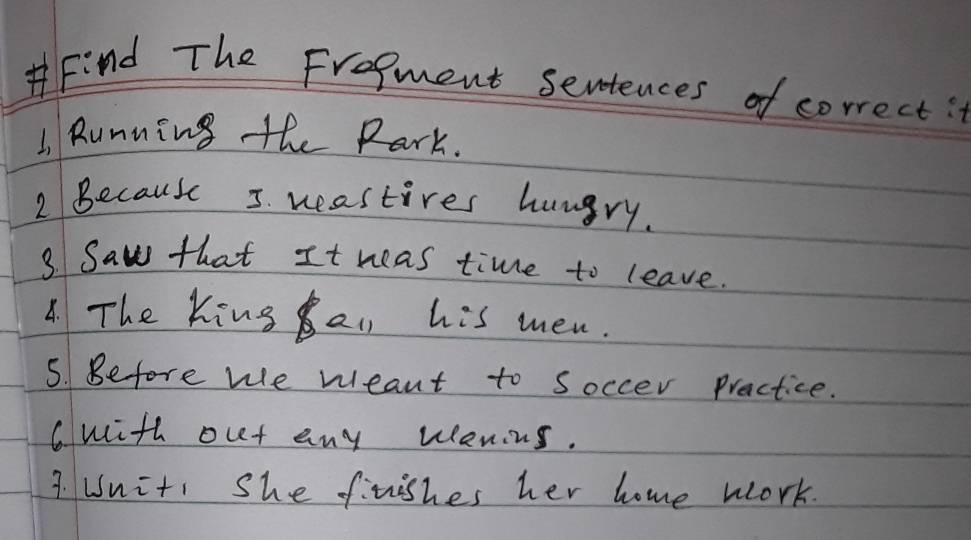 #Find The Fragment Sentences of correct it
1, Running the Park.
2 Because I. was tires hungry.
3. Saw that It was time to leave.
4. The King & all his men.
5. Before we weant to Soccer Practice.
6. With out any waning.
7. Until She finishes her home work.